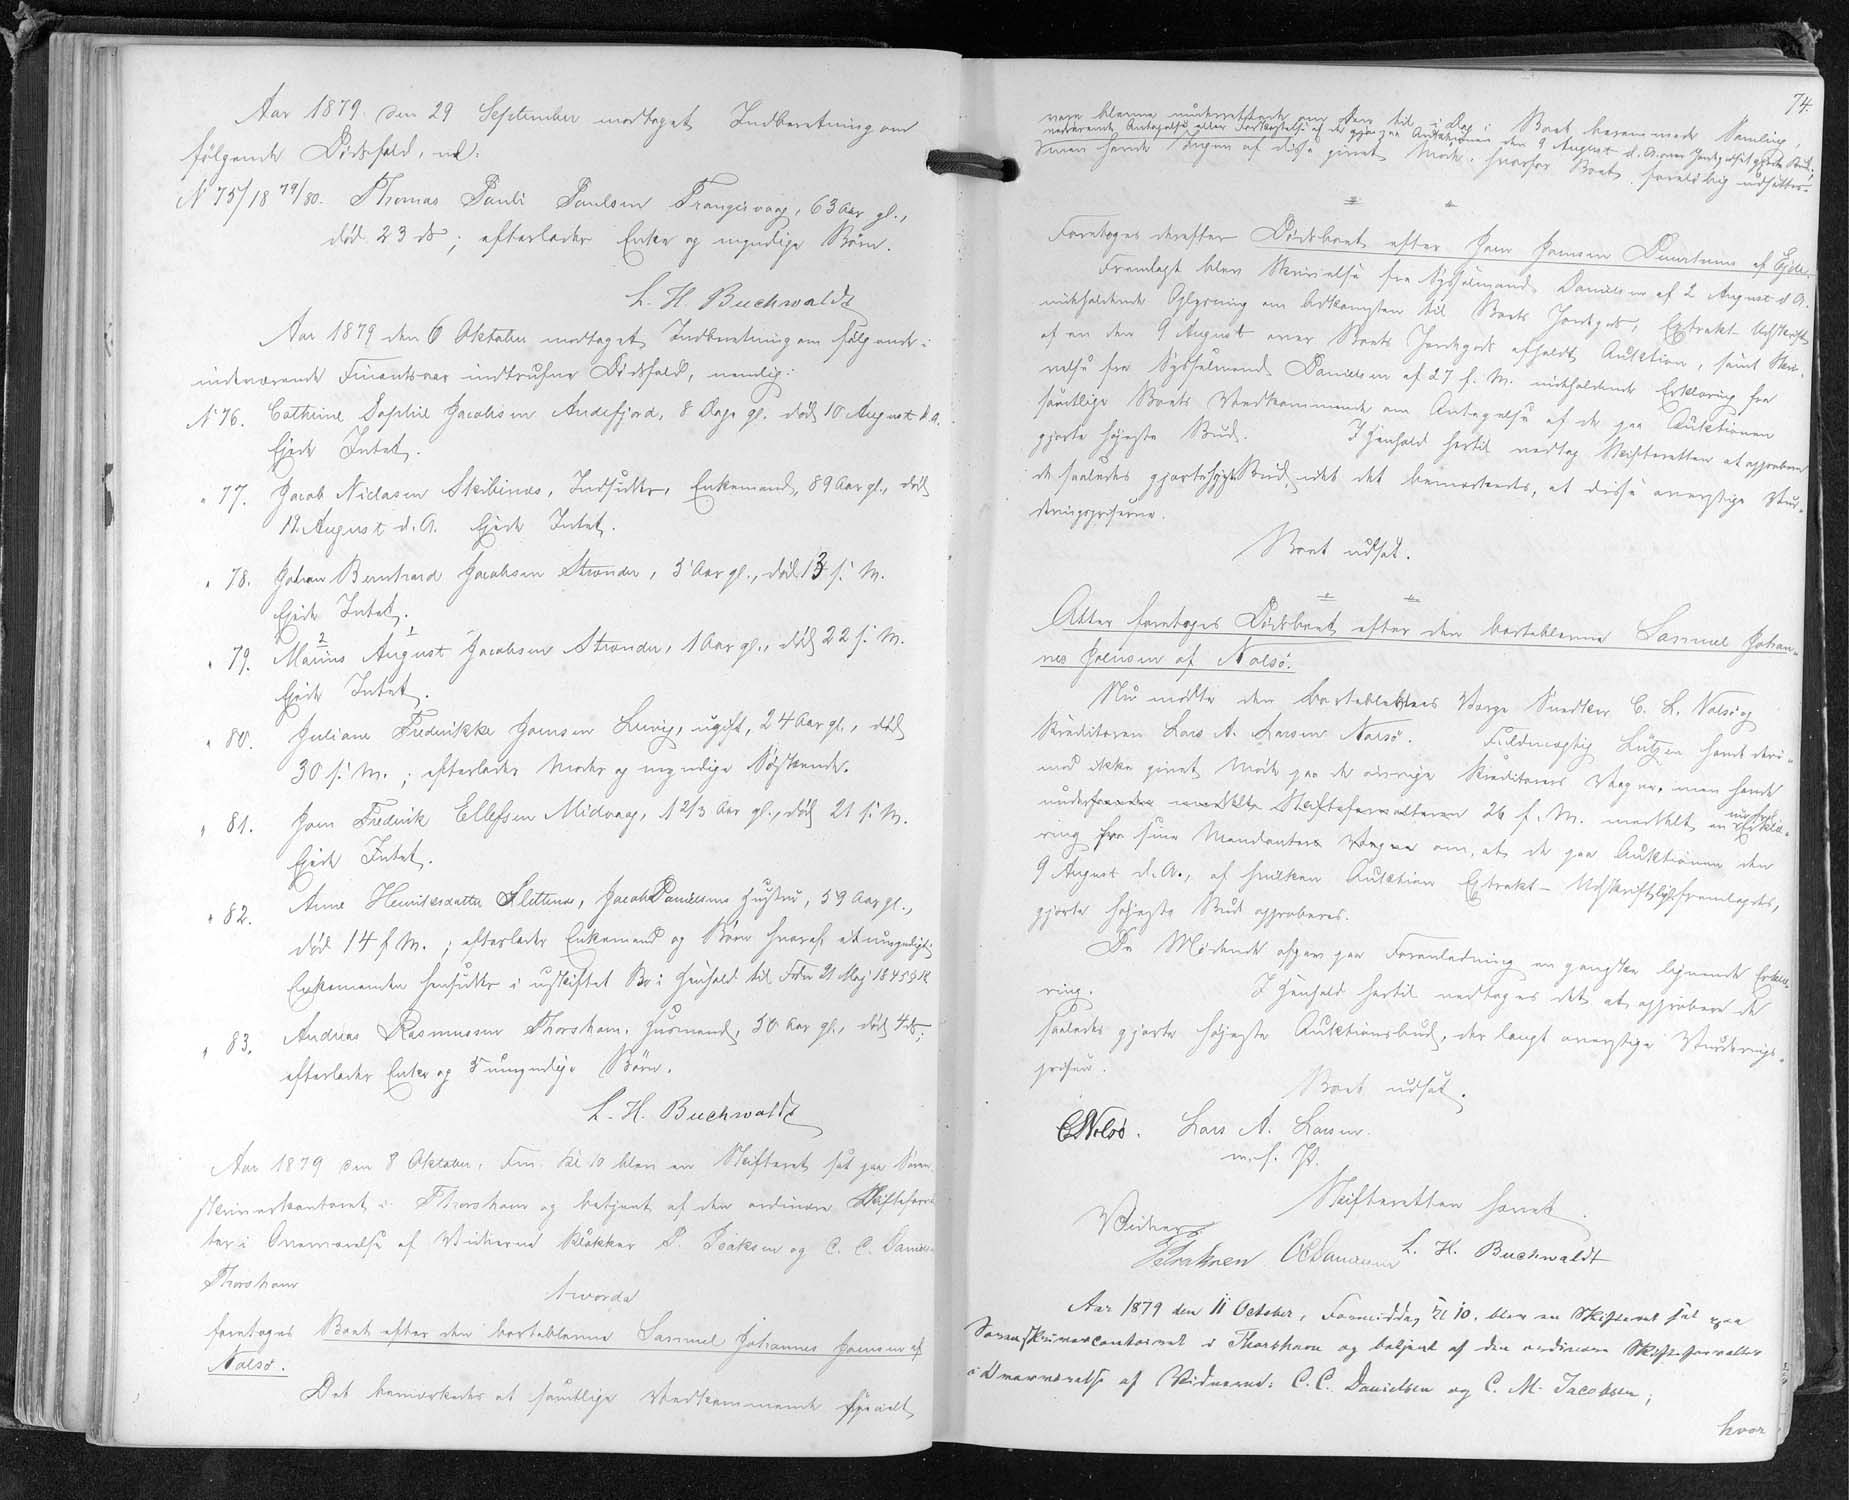 Aar 1879 den 29 September modtaget Indberetning om
følgende Dødsfald, nl:
N 75/18 79/80. Thomas Pauli Paulsen Frangisvaag, 63 Aar gl.,
død 23 ds; efterlader Enke og myndige Børn.
L. H. Buchwaldt
Aar 1879 den 6 Oktober modtaget Indberetning om følgende i
indeværende Finantsaar indtrufne Dødsfald, nemlig:
N 76. Cathrine Sophie Jacobsen Andefjord, 8 Dage gl. død 10 August d.A.
Ejede Intet.
" 77. Jacob Niclasen Skibenæs, Indsidder, Enkemand, 89 Aar gl., død
19 August d. A. Ejede Intet.
" 78. Johan Bernhard Jacobsen Strender, 3 Aar gl., død 13 f. M.
Ejede Intet.
" 79. Marius August Jacobsen Strender, 1 Aar gl., død 22 f. M.
Ejede Intet.
" 80. Juliane Fredrikke Joensen Lervig, ugift, 24 Aar gl., død
30 f. M.; efterlader Moder og myndige Søskende.
" 81. Joen Fredrik Ellefsen Midvaag, 1 2/3 Aar gl., død 21 f. M.
Ejede Intet.
" 82. Anne Henriksdatter Slettenæs, Jacob Danielsens Hustru, 59 Aar gl.,
død 14 f. M.; efterlader Enkemand og Børn hvoraf et umyndigt;
Enkemanden hensidder i uskiftet Bo i Henhold til Fdn 21 Maj 1845 § 18
" 83. Andreas Rasmussen Thorshavn, Husmand, 50 Aar gl., død 4 ds;
efterlader Enke og 5 umyndige Børn.
L. H. Buchwaldt
Aar 1879 den 8 Oktober, Fm. Kl 10 blev en Skifteret sat paa Soren
skriverkontoret i Thorshavn og betjent af den ordinære Skifteforval
ter i Overværelse af Vidnerne Klokker P. Isaksen og C. C. Daniels
Thorshavn
hvorda
foretoges Boet efter den borteblevne Samuel Johannes Joensen af
Nolsø.
Det bemærkedes at samtlige Vedkommende specielt
74.
vare blevne underrettede om den til i Dag i Boet berammede Samling,
vedrørende Antagelse eller Forkastelse af de paa Auktionen den 9 August d. A. over Jordegodset gjorte Bud,
men havde Ingen af disse givet Møde, hvorfor Boet foreløbig udsattes.
Foretoges derefter Dødsboet efter Joen Joensen Duurhuus af Ejde
Fremlagt blev Skrivelse fra Sysselmand Danielsen af 2 August d. A.
indeholdende Oplysning om Adkomsten til Boets Jordegods, Extrakt-Udskrift
af en den 9 August over Boets Jordegods afholdt Auktion, samt Skri-
velse fra Sysselmand Danielsen af 27 f. M. indeholdende Erklæring fra
samtlige Boets Vedkommende om Antagelse af de paa Auktionen
gjorte højeste Bud. I Henhold hertil vedtog Skifteretten at approbere
de saaledes gjorte højeste Bud, idet det bemærkedes, at disse overstige Vur-
deringspriserne.
Boet udsat.
Atter foretoges Dødsboet efter den bortblevne Samuel Johan-
nes Joensen af Nolsø.
Nu mødte den bortblevnes Værge Snedker C. L. Nolsø og
Kreditoren Lars A. Larsen Nolsø. Fuldmægtig Lützen havde der-
mod ikke givet Møde paa de øvrige Kreditorers Vegne, men havde
under 26 f. M. meddelt en Erklæ-
ring fra sine Mandanters Vegne om, at de paa Auktionen den
9 August d. A., af hvilken Auktion Extrakt-Udskrift fremlagdes,
gjorte højeste Bud approberes.
De Mødende afgav paa Foranledning en ganske lignende Erklæ-
ring. I Henhold hertil vedtoges det at approbere de
saaledes gjorte højeste Auktionsbud, der langt overstige Vurderings-
prisen.
Boet udsat.
C Nolsø. Lars A. Larsen.
m. f. P.
Skifteretten hævet.
Vidner
P Isaksen C C Danielsen L. H. Buchwaldt
Aar 1879 den 11 October, Formiddag Kl 10, blev en Skifteret sat paa
Sorenskrivercontoiret i Thorshavn og betjent af den ordinære Skifteforvalter
i Overværelse af Vidnerne: C. C. Danielsen og C. M. Jacobsen;
hvor